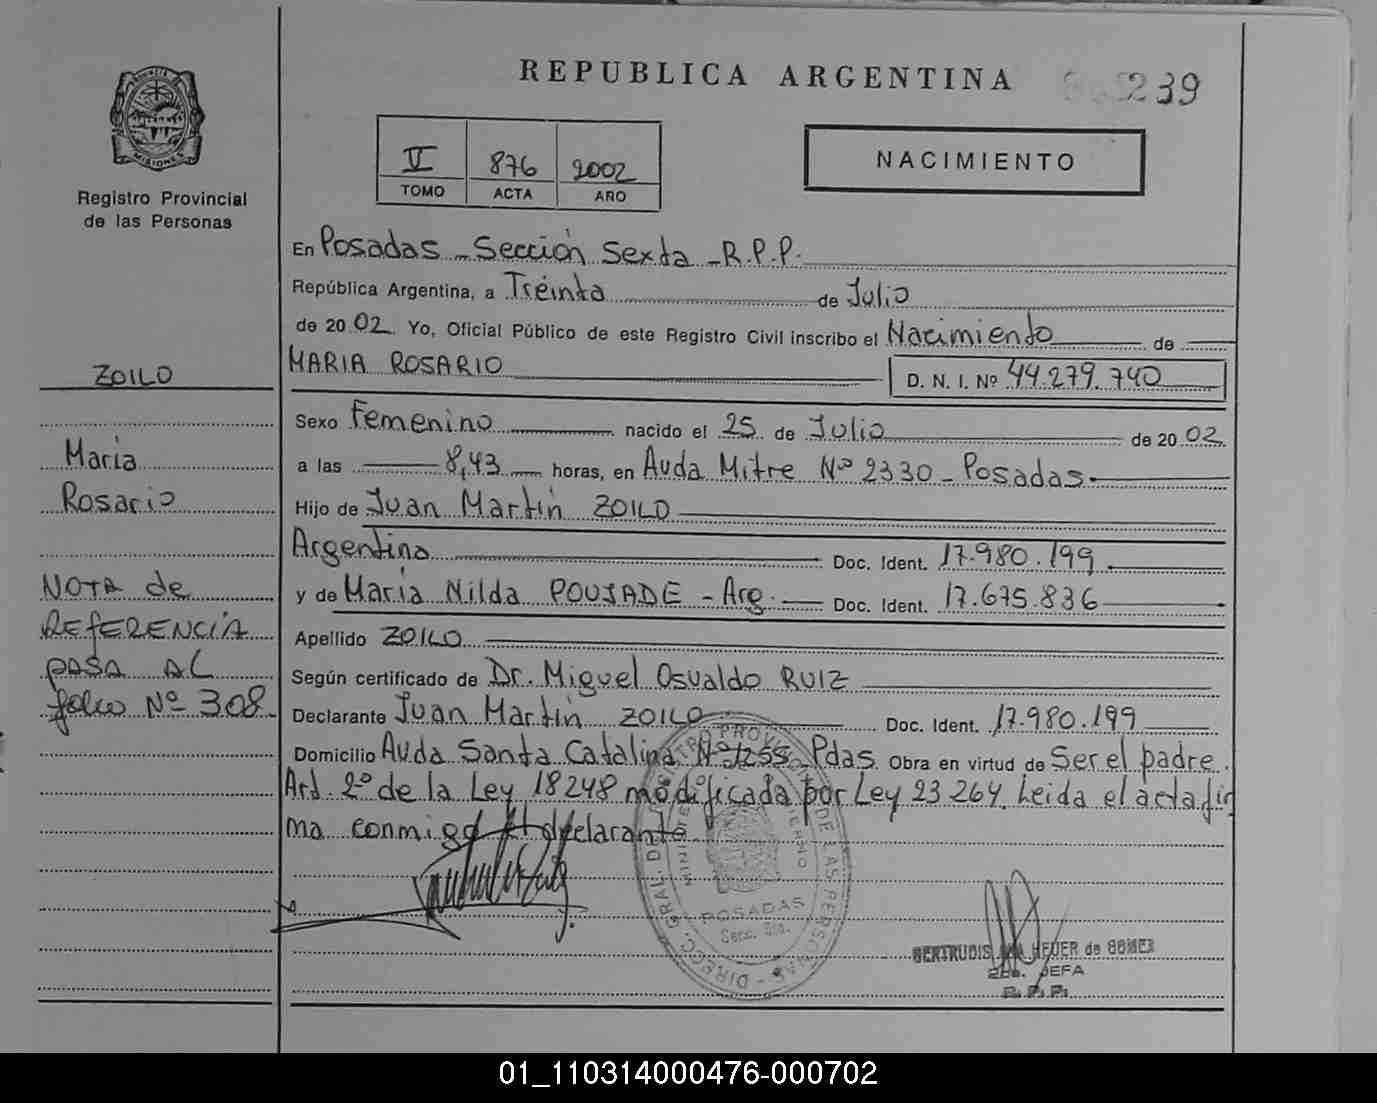 REPUBLICA ARGENTINA
239
PROVINCIA DE
MISIONES
Registro Provincial
de las Personas
II 876 2002
TOMO ACTA AÑO
NACIMIENTO
En Posadas - Sección Sexta - R.P.P.
República Argentina, a Treinta de Julio
de 2002. Yo, Oficial Público de este Registro Civil inscribo el Nacimiento de
MARIA ROSARIO D. N. I. Nº 44.279.740
Sexo Femenino nacido el 25 de Julio de 2002
a las 8,43 horas, en Avda Mitre Nº 2330 - Posadas.
Hijo de Juan Martin ZOILO
Argentino Doc. Ident. 17.980.199
y de Maria Nilda POUJADE - Arg. Doc. Ident. 17.675.836
Apellido ZOILO
Según certificado de Dr. Miguel Osvaldo RUIZ
Declarante Juan Martin ZOILO Doc. Ident. 17.980.199
Domicilio Avda Santa Catalina Nº 1255 Pdas. Obra en virtud de Ser el padre.
Art. 2º de la Ley 18248 modificada por Ley 23264. Leida el acta fir
ma conmigo el declarante
ZOILO
Maria
Rosario
NOTA de
REFERENCIA
PASA AL
folio Nº 308
DIREC. GRAL. DEL REGISTRO PROVINCIAL DE LAS PERSONAS
POSADAS
Secc. 6ta.
GERTRUDIS HEUER de GOMEZ
2da. JEFA
R.P.P.
01_110314000476-000702